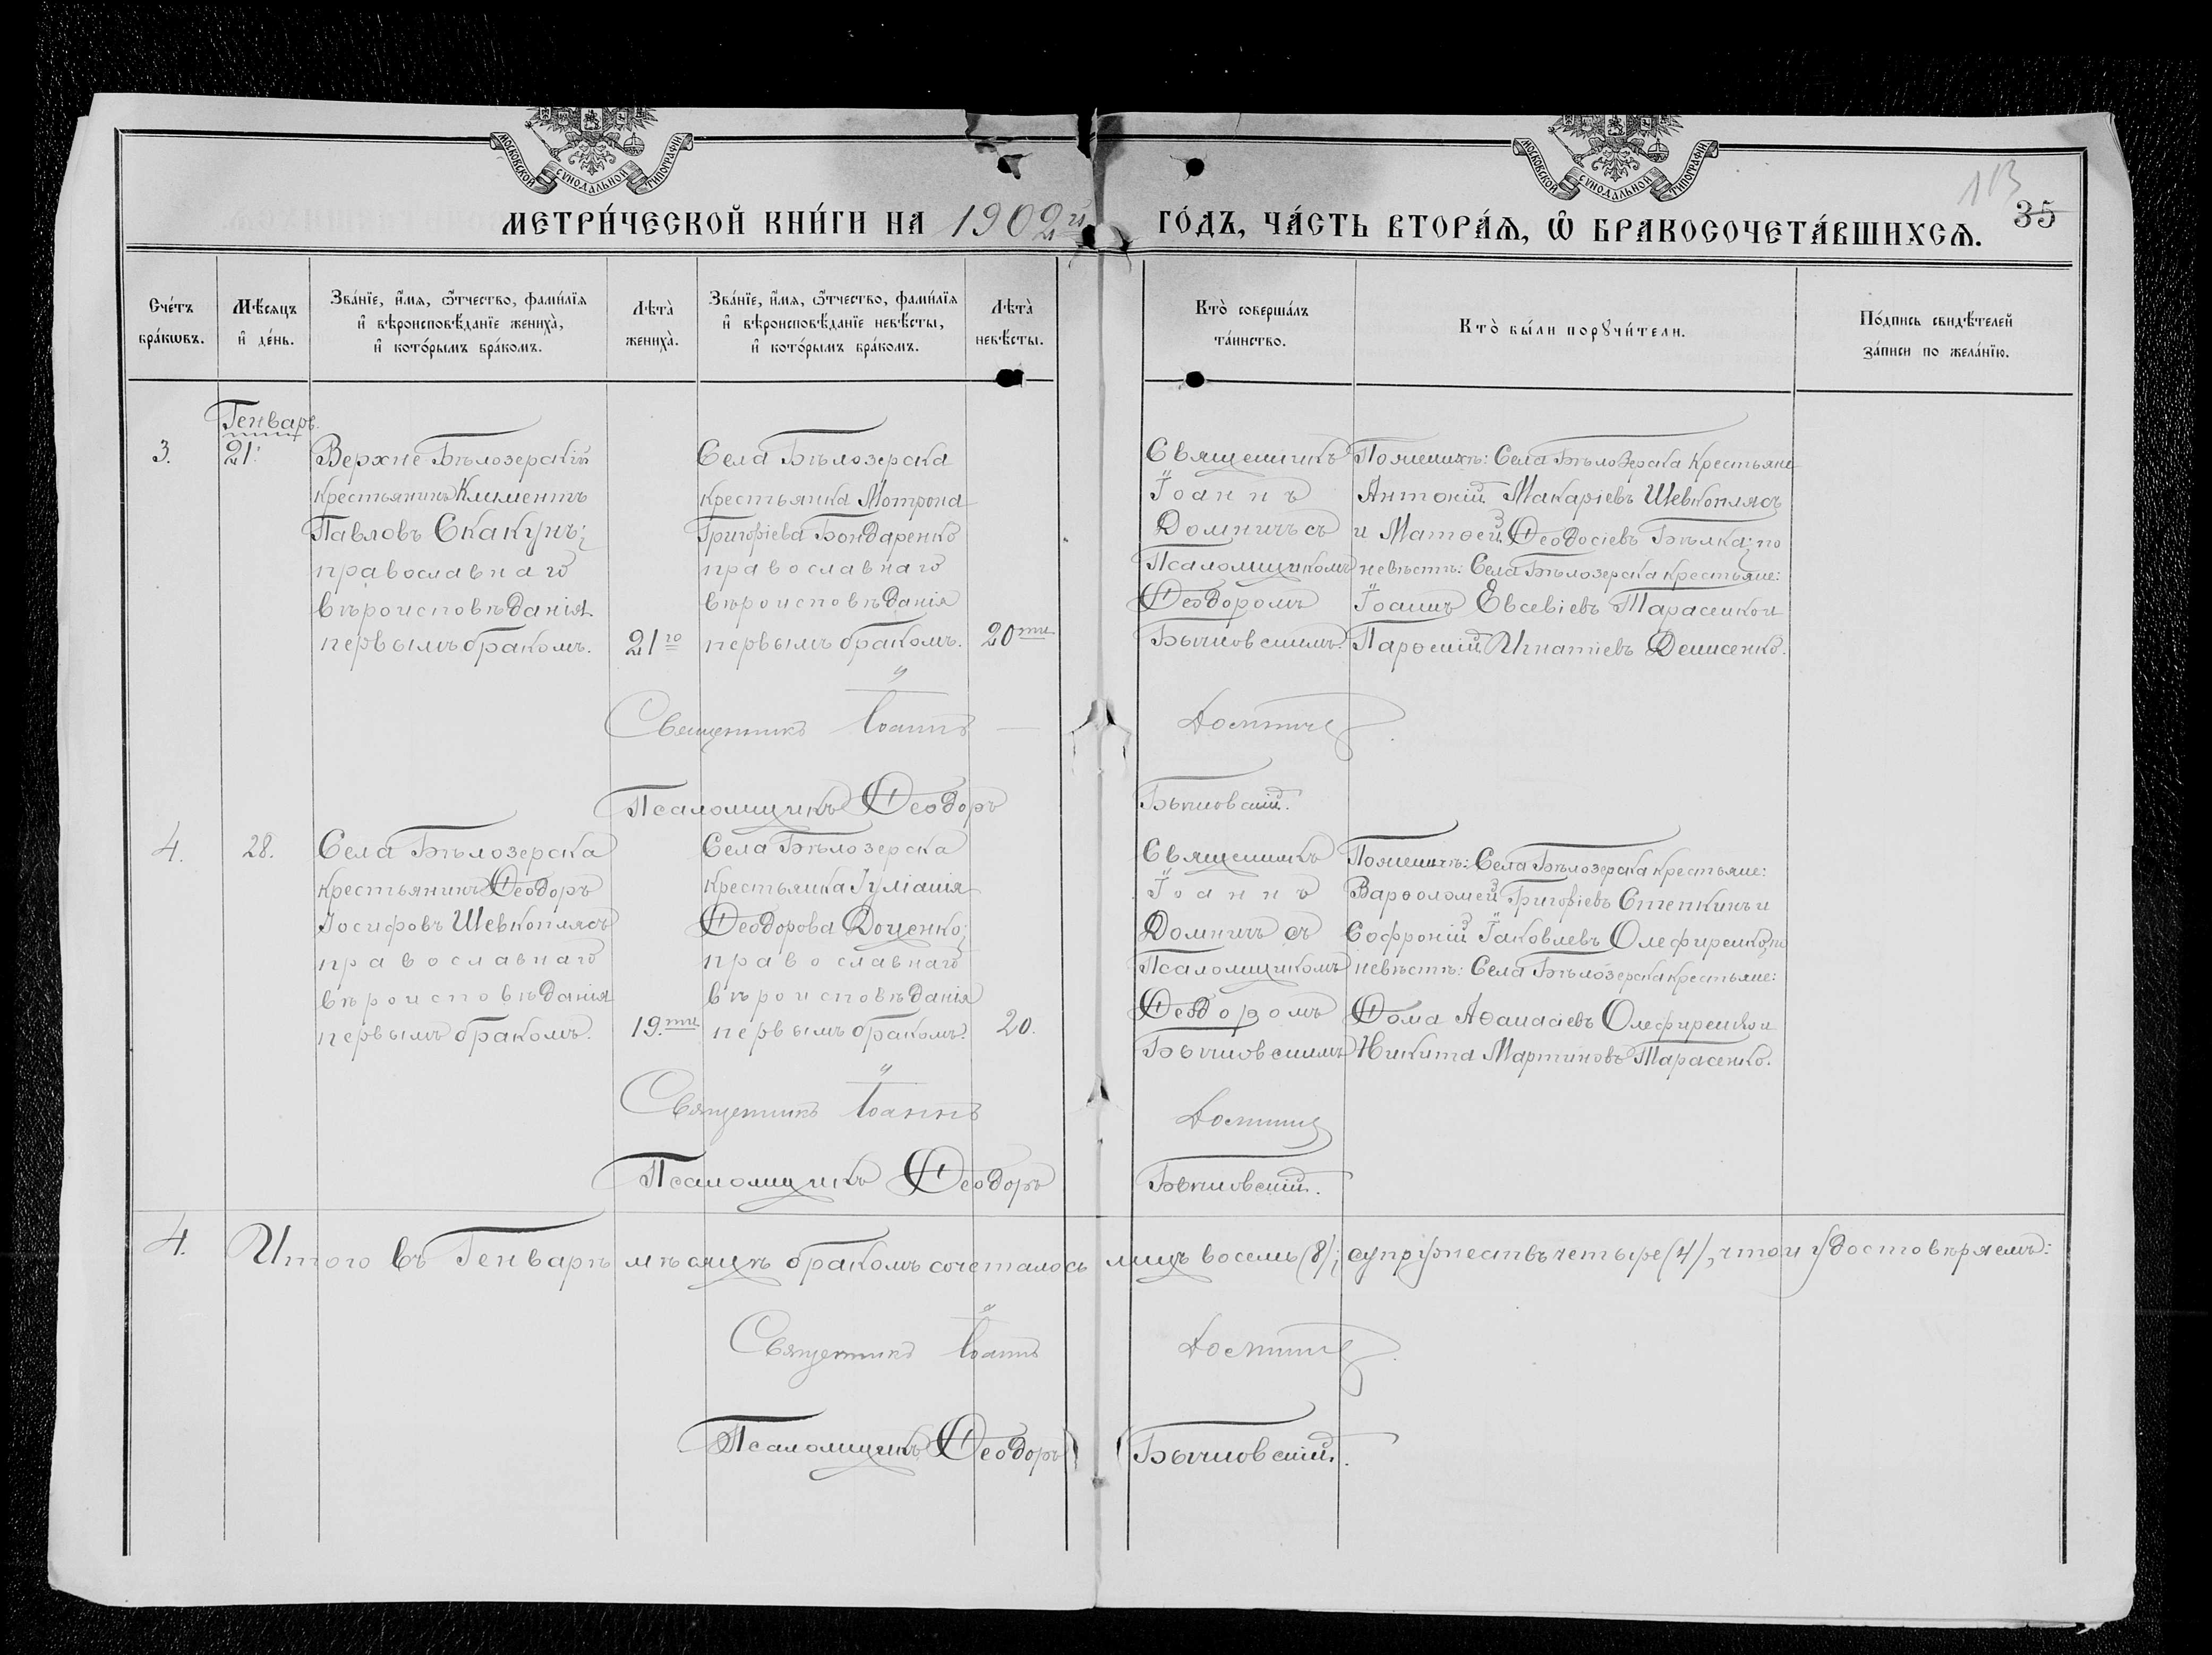 МОСКОВСКОЙ СУНОДАЛЬНОЙ ТИПОГРАФІИ
МОСКОВСКОЙ СУНОДАЛЬНОЙ ТИПОГРАФІИ
113
35
МЕТРИ́ЧЕСКОЙ КНИ́ГИ НА 1902й ГО́ДЪ, ЧА́СТЬ ВТОРА́Ѧ, Ѽ БРАКОСОЧЕТА́ВШИХСѦ.
Сче́тъ
бра́кѡвъ.
Мѣ́сяцъ
и де́нь.
Зва́нїе, и́мя, ѻ́тчество, фами́лїя
и вѣроисповѣ́данїе жениха̀,
и кото́рымъ бра́комъ.
Лѣта̀
жениха̀.
Зва́нїе, и́мя, ѻ́тчество, фами́лїя
и вѣроисповѣ́данїе невѣ́сты,
и кото́рымъ бра́комъ.
Лѣта̀
невѣ́сты.
Кто̀ соверша́лъ
та́инство.
Кто̀ бы́ли порꙋчи́тели.
По́дпись свидѣ́телей
за́писи по жела́нїю.
Генварь
3.
21.
Верхне Бѣлозерскій
крестьянинъ Климентъ
Павловъ Скакунъ;
православнаго
вѣроисповѣданія
первымъ бракомъ.
21го
Села Бѣлозерска
крестьянка Мотрона
Григоріева Бондаренко
православнаго
вѣроисповѣданія
первымъ бракомъ.
20ти
Священникъ
Іоаннъ
Домничъ съ
Псаломщикомъ
Ѳеодоромъ
Бычковскимъ.
По женихѣ: Села Бѣлозерска крестьяне
Антоній Макаріевъ Шевкоплясъ
и Матѳей Ѳеодосіевъ Бѣлка; по
невѣстѣ: Села Бѣлозерска крестьяне:
Іоаннъ Евсевіевъ Тарасенко и
Парѳеній Игнатіевъ Денисенко.
Священникъ Іоаннъ Домничъ.
Псаломщикъ Ѳеодоръ Бычковскій.
4.
28.
Села Бѣлозерска
крестьянинъ Ѳеодоръ
Іосифовъ Шевкоплясъ
православнаго
вѣроисповѣданія
первымъ бракомъ.
19.ти
Села Бѣлозерска
крестьянка Іуліанія
Ѳеодорова Доценко;
православнаго
вѣроисповѣданія
первымъ бракомъ.
20.
Священникъ
Іоаннъ
Домничъ съ
Псаломщикомъ
Ѳеодоромъ
Бычковскимъ
По женихѣ: Села Бѣлозерска крестьяне:
Варѳоломей Григоріевъ Степкинъ и
Софроній Іаковлевъ Олефиренко; по
невѣстѣ: Села Бѣлозерска крестьяне:
Ѳома Аѳанасіевъ Олефиренко и
Никита Мартиновъ Тарасенко.
Священникъ Іоаннъ Домничъ
Псаломщикъ Ѳеодоръ Бычковскій.
4. Итого въ Генварѣ мѣсяцѣ бракомъ сочеталось лицъ восемь (8); супружествъ четыре (4), что и удостовѣряемъ:
Священникъ Іоаннъ Домничъ.
Псаломщикъ Ѳеодоръ Бычковскій.